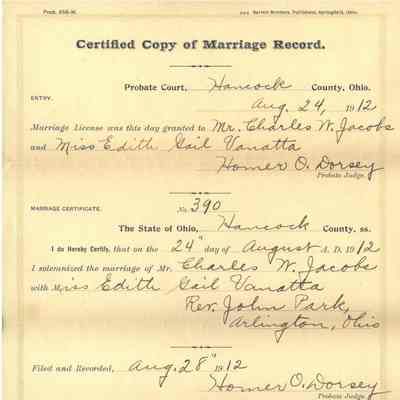 Prob. 658-W. The Barrett Brothers, Publishers, Springfield, Ohio.
Certified Copy of Marriage Record.
Probate Court, Hancock County, Ohio.
ENTRY. Aug. 24, 1912
Marriage License was this day granted to Mr. Charles W. Jacobs
and Miss Edith Gail Vanatta
Homer O. Dorsey
Probate Judge.
MARRIAGE CERTIFICATE. No. 390
The State of Ohio, Hancock County, ss.
I do Hereby Certify, that on the 24" day of August A. D. 1912
I solemnized the marriage of Mr. Charles W. Jacobs
with Miss Edith Gail Vanatta
Rev. John Park,
Arlington, Ohio
Filed and Recorded, Aug. 28" 1912
Homer O. Dorsey
Probate Judge.